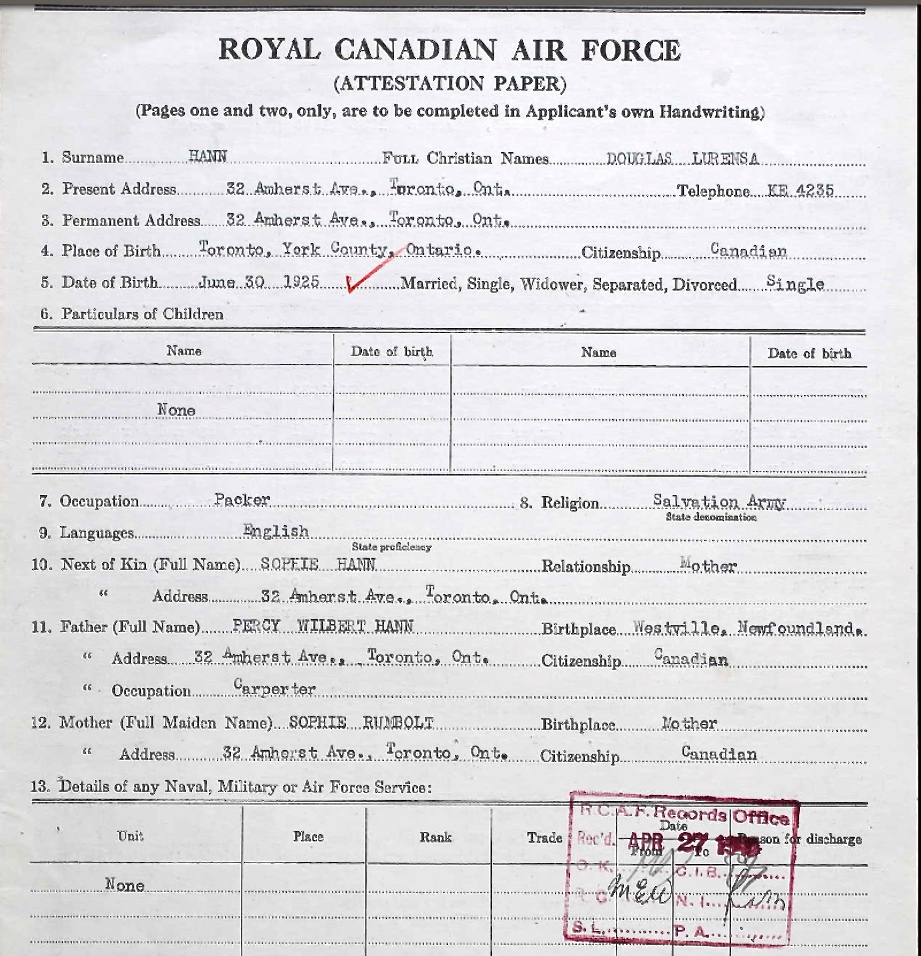 ROYAL CANADIAN AIR FORCE
(ATTESTATION PAPER)
(Pages one and two, only, are to be completed in Applicant's own Handwriting)
1. Surname HANN Full Christian Names DOUGLAS LURENSA
2. Present Address 32 Amherst Ave., Toronto, Ont. Telephone KE 4235
3. Permanent Address 32 Amherst Ave., Toronto, Ont.
4. Place of Birth Toronto, York County, Ontario. Citizenship Canadian
5. Date of Birth June 30 1925 Married, Single, Widower, Separated, Divorced Single
6. Particulars of Children
Name Date of birth Name Date of birth
None
7. Occupation Packer 8. Religion Salvation Army
State denomination
9. Languages English
State proficiency
10. Next of Kin (Full Name) SOPHIE HANN Relationship Mother
" Address 32 Amherst Ave., Toronto, Ont.
11. Father (Full Name) PERCY WILBERT HANN Birthplace Westville, Newfoundland.
" Address 32 Amherst Ave., Toronto, Ont. Citizenship Canadian
" Occupation Carperter
12. Mother (Full Maiden Name) SOPHIE RUMBOLT Birthplace Mother
" Address 32 Amherst Ave., Toronto, Ont. Citizenship Canadian
13. Details of any Naval, Military or Air Force Service:
R.C.A.F. Records Office
Date
Unit Place Rank Trade Rec'd. APR 27 for discharge
From To
O.K. C.I.B.
None R.C. MEW N.I.
S.L. P.A.